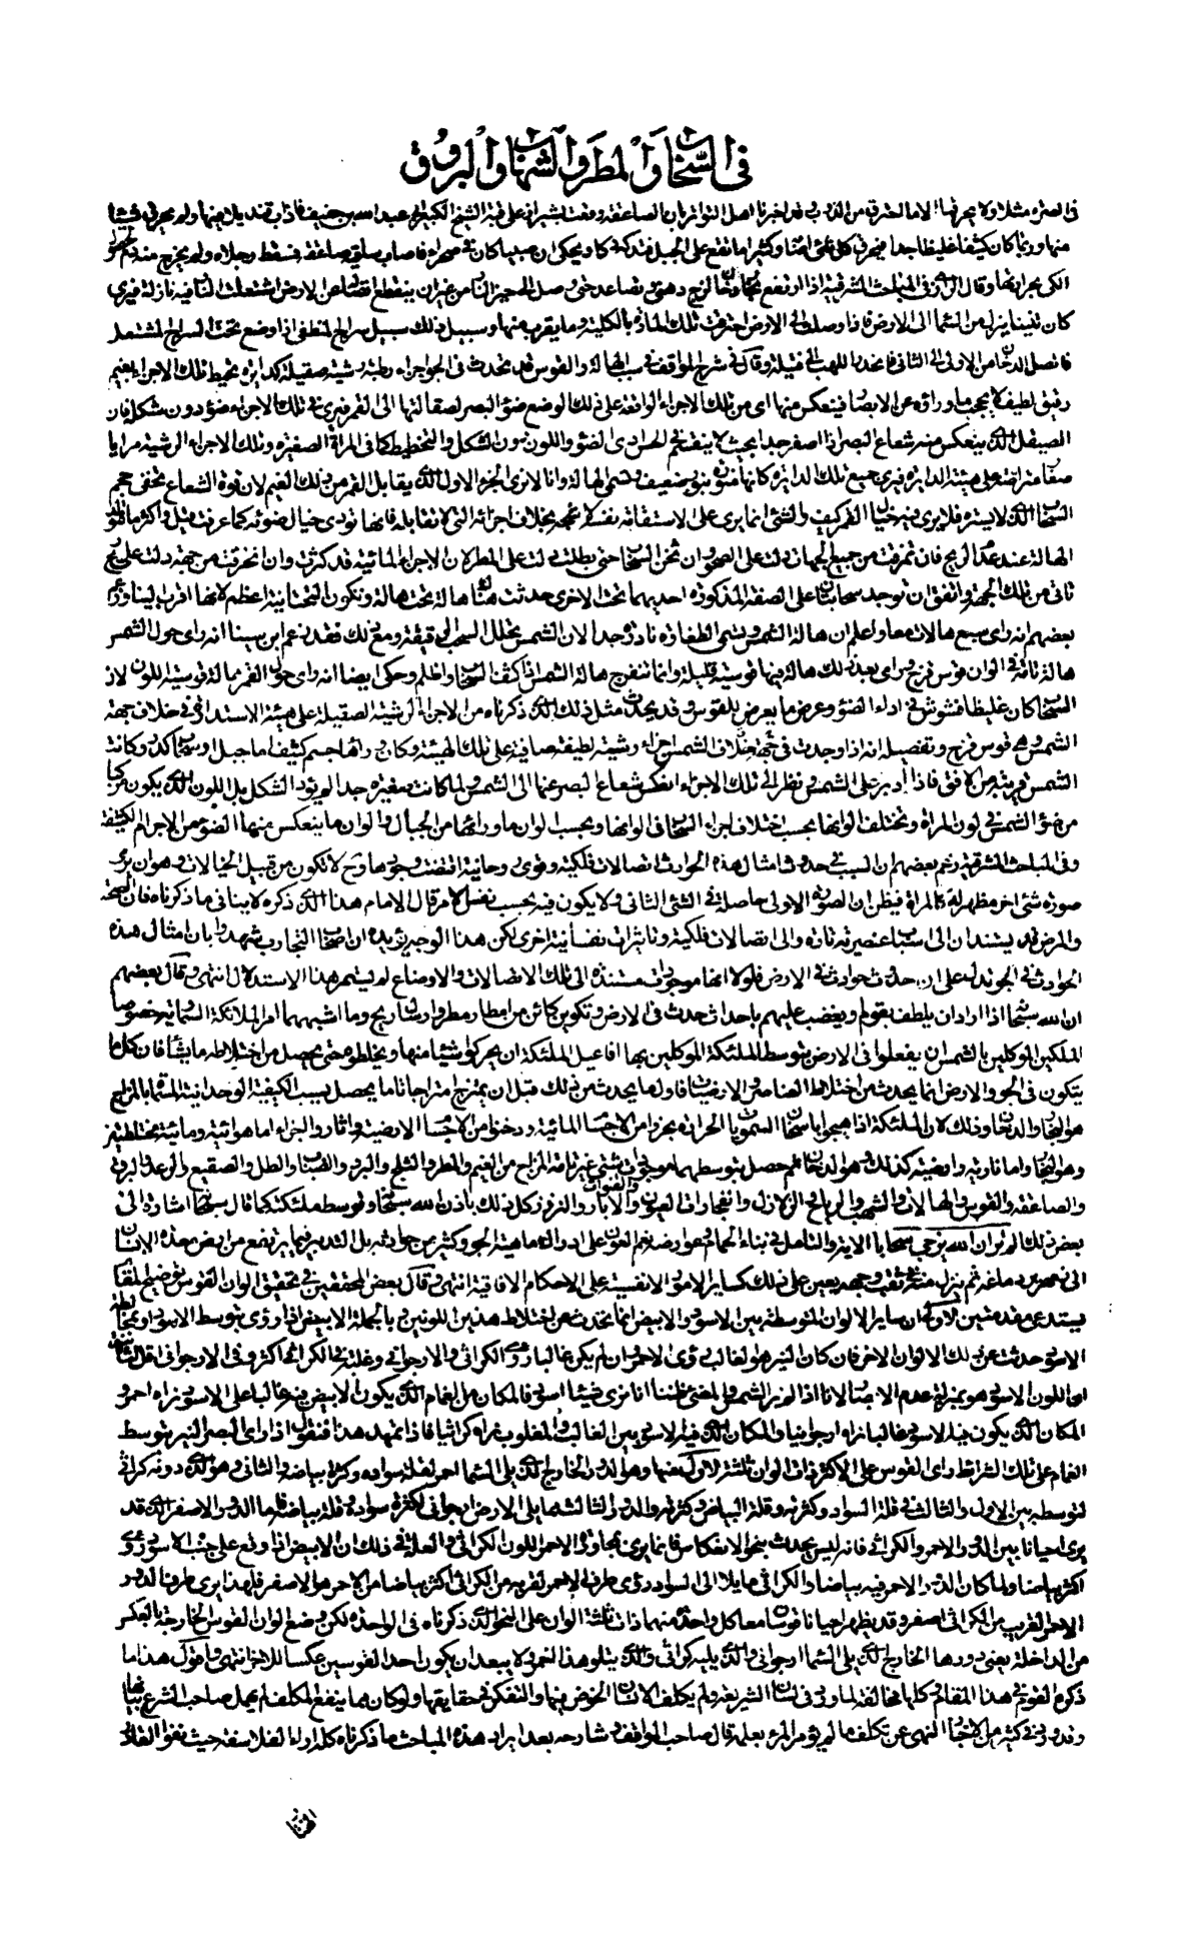 في السحاب والمطر والشهاب والبروق
في الصرة مثلا ولا يحرقها الا ما احترق من الذائب وقد اخبرنا اهل التواتر بان الصاعقة وقعت بشيراز على قبة الشيخ الكبير ابي عبد الله بن خفيف فاذاب قنديلا فيها ولم يحرق شيئا
منها وربما كان كثيفا غليظا جدا فيحرق كل شيء اصابه وكثيرا ما تقع على الجبل فتدكه دكا ويحكى ان صبيا كان في صحراء فاصاب ساقيه صاعقة فسقط رجلاه ولم يخرج منه دم لحصول
الكي بحرارتها وقال الرازي في المباحث المشرقية اذا ارتفع بخار دخاني لزج دهني وتصاعد حتى وصل الى حيز النار من غير ان ينقطع اتصاله عن الارض اشتعلت النار فيه نازلة فيرى
كان تنينا ينزل من السماء الى الارض فاذا وصلت الى الارض احترقت تلك المادة بالكلية وما يقرب منها وسبيل ذلك سبيل السراج المنطفي اذا وضع تحت السراج المشتعل
فاتصل الدخان من الاول الى الثاني فانحدر اللهب الى فتيلة وقال في شرح المواقف في سبب الهالة والقوس قد تحدث في الجو اجزاء رطبة رشية صقيلة كدائرة تحيط تلك الاجزاء بغيم
رقيق لطيف لا يحجب ما وراءه عن الابصار فينعكس منها اي من تلك الاجزاء الواقعة على ذلك الوضع ضوء البصر لصقالتها الى القمر فيرى في تلك الاجزاء ضوؤه دون شكله فان
الصيقل الذي ينعكس منه شعاع البصر اذا صغر جدا بحيث لا ينقسم في الحس ادى الضوء واللون دون الشكل والتخطيط كما في المرآة الصغيرة وتلك الاجزاء الرشية مرايا
صغار متراصة على هيئة الدائرة فيرى جميع تلك الدائرة كانها منورة بنور ضعيف وتسمى الهالة وانما لا نرى الجزء الاول الذي يقابل القمر من ذلك الغيم لان قوة الشعاع تخفي حجم
السحاب الذي لا يستره فلا يرى فيه خيال القمر كيف والشيء انما يرى على الاستقامة نفسه لا شبحه بخلاف اجزائه التي لا تقابله فانها تؤدي خيال ضوئه كما عرفت قيل واكثر ما تتولد
الهالة عند عدم الريح فان تمزقت من جميع الجهات دلت على الصحو وان ثخن السحاب حتى بطلت دلت على المطر لان الاجزاء المائية قد كثرت وان تخرقت من جهة دلت على ريح
تاتي من تلك الجهة وان اتفق ان توجد سحابتان على الصفة المذكورة احديهما تحت الاخرى حدثت هناك هالة تحت هالة وتكون التحتانية اعظم لانها اقرب الينا وزعم
بعضهم انه راى سبع هالات معا واعلم ان هالة الشمس وتسمى الطفاوة نادرة جدا لان الشمس تحلل السحب الرقيقة ومع ذلك فقد زعم ابن سينا انه راى حول الشمس
هالة تامة في الوان قوس قزح وراى بعد ذلك هالة فيها قوسية قليلة وانما تنفرج هالة الشمس اذا كثف السحاب واظلم وحكى ايضا انه راى حول القمر هالة قوسية اللون لان
السحاب كان غليظا فشوش في اداء الضوء وعرض ما يعرض للقوس وقد يحدث مثل ذلك الذي ذكرناه من الاجزاء الرشية الصقيلة على هيئة الاستدارة في خلاف جهة
الشمس وهي قوس قزح وتفصيله انه اذا وجدت في جهة خلاف الشمس اجزاء رشية لطيفة صافية على تلك الهيئة وكان وراءها جسم كثيف اما جبل او سحاب كدر وكانت
الشمس قريبة من الافق فاذا ادبر على الشمس ونظر الى تلك الاجزاء انعكس شعاع البصر عنها الى الشمس ولما كانت صغيرة جدا لم يؤد الشكل بل اللون الذي يكون مركبا
من ضوء الشمس ولون المرآة وتختلف الوانها بحسب اختلاف اجزاء السحاب في الوانها وبحسب الوان ما وراءها من الجبال والوان ما ينعكس منها الضوء من الاجرام الكثيفة
وفي المباحث المشرقية زعم بعضهم ان السبب في حدوث امثال هذه الحوادث اتصالات فلكية وقوى روحانية اقتضت وجودها وح لا تكون من قبيل الخيالات وهو ان يرى
صورة شيء اخر مظهر له كالمرآة فيظن ان الصورة الاولى حاصلة في الشيء الثاني ولا يكون فيه بحسب نفس الامر قال الامام هذا الذي ذكره لا ينافي ما ذكرناه فان الصحة
والمرض قد يستندان الى اسباب عنصرية تارة والى اتصالات فلكية وتاثيرات نفسانية اخرى لكن هذا الوجه يؤيده ان اصحاب التجارب شهدوا بان امثال هذه
الحوادث في الجو تدل على حدوث حوادث في الارض فلولا انها موجودات مستندة الى تلك الاتصالات والاوضاع لم يستمر هذا الاستدلال انتهى وقال بعضهم
ان الله سبحانه اذا اراد ان يلطف بقوم او يغضب عليهم باحداث حدث في الارض وتكوين كائن من امطار مطر وارسال ريح وما اشبههما امر الملائكة السماوية خصوصا
الملكين الموكلين بالشمس ان يفعلوا في الارض بتوسط الملئكة الموكلين بها افاعيل الملئكة ان يحركوا شيئا منها ويخلطوه حتى يحصل من اختلاطه ما يشاء فان كل ما
يتكون في الجو والارض انما يحدث من اختلاط العناصر والارضيات فاول ما يحدث من ذلك قبل ان يمتزج امتزاجا تاما يحصل بسبب الكيفية الوحدانية المسماة بالمزاج
هو البخار والدخان وذلك لان الملئكة اذا هيجوا باسخان السماويات الحرارة بخروا من الاجسام المائية ودخنوا من الاجسام الارضية واثاروا اجزاء اما هوائية ومائية مختلطتين
وهو البخار واما نارية وارضية كذلك وهو الدخان ثم حصل بتوسطهما موجودات شتى غير تامة المزاج من الغيم والمطر والثلج والبرد والضباب والطل والصقيع والرعد والبرق
والصاعقة والقوس والهالات والشهب والرياح والزلازل وانفجارات العيون والقنوات والابار والنزوز كل ذلك باذن الله سبحانه وتوسط ملئكته كما قال سبحانه اشارة الى
بعض ذلك الم تر ان الله يزجي سحابا الاية والتامل في بناء الحمام وعوارضه نعم العون على ادراك ماهية الجو وكثير من حوادثه بل التدبر فيما يرتفع من ارض معدة الانسان
الى زمهرير دماغه ثم ينزل منه في ثقب وجهه يعين على ذلك كساير الامور الانفسية على الاحكام الافاقية انتهى وقال بعض المحققين في تحقيق الوان القوس توضيح المقام
يستدعي مقدمتين الاولى ان ساير الالوان المتوسطة بين الاسود والابيض انما يحدث عن اختلاط هذين اللونين وبالجملة الابيض اذا رؤي بتوسط الاسود او بمخالطة
الاسود حدثت عن ذلك الالوان الاخر فان كان النير هو الغالب رؤي الاحمر وان لم يكن غالبا رؤي الكراثي والارجواني وغلبته في الكراثي اكثر وفي الارجواني اقل الثانية
ان اللون الاسود هو بمنزلة عدم الابصار لانا اذا لم نر الشمس والمضيء ظننا انا نرى شيئا اسود فالمكان من الغمام الذي يكون الابيض فيه غالبا على الاسود نراه احمر و
المكان الذي يكون فيه الاسود غالبا نراه ارجوانيا والمكان الذي فيه الاسود بين الغالب والمغلوب نراه كراثيا فاذا تمهد هذا فنقول اذا راى البصر النير بتوسط
الغمام على تلك الشرائط راى القوس على الاكثر ذات الوان ثلثة الاول منها وهو الدور الخارج الذي يلي السماء احمر لقلة سواده وكثرة بياضه والثاني وهو الذي دونه كراثي
لتوسطه بين الاول والثالث في قلة السواد وكثرته وقلة البياض وكثرته والدور الثالث مما يلي الارض ارجواني لكثرة سواده وقلة بياضه فاما الدور الاصفر الذي قد
يرى احيانا بين الدور الاحمر والكراثي فانه ليس يحدث بنحو الانعكاس فانما يرى بمجاورة الاحمر اللون الكراثي والعلة في ذلك ان الابيض اذا وقع على جنب الاسود رؤي
اكثر بياضا ولما كان الدور الاحمر فيه بياض والكراثي مايلا الى السواد رؤي طرف الاحمر لقربه من الكراثي اكثر بياضا من الاحمر هو الاصفر فلهذا يرى طرف الدور
الاحمر القريب من الكراثي اصفر وقد يظهر احيانا قوسان معا كل واحدة منهما ذات ثلثة الوان على النحو الذي ذكرناه في الواحدة لكن وضع الوان القوس الخارجة بالعكس
من الداخلة يعني دورها الخارج الذي يلي السماء ارجواني والذي يليه كراثي والذي يتلو هذا احمر ولا يبعد ان يكون احد القوسين عكسا للاخر انتهى واقول هذا ما
ذكره القوم في هذا المقام وكلها مخالفة لما ورد في لسان الشريعة ولم يكلف الانسان الخوض فيها والتفكر في حقايقها ولو كان مما ينفع المكلف لم يهمل صاحب الشرع بيانها
وقد ورد في كثير من الاخبار النهي عن تكلف ما لم يؤمر المرء بعلمه قال صاحب المواقف وشارحه بعد ايراد هذه المباحث ما ذكرناه كله اراء الفلاسفة حيث نفوا القادر